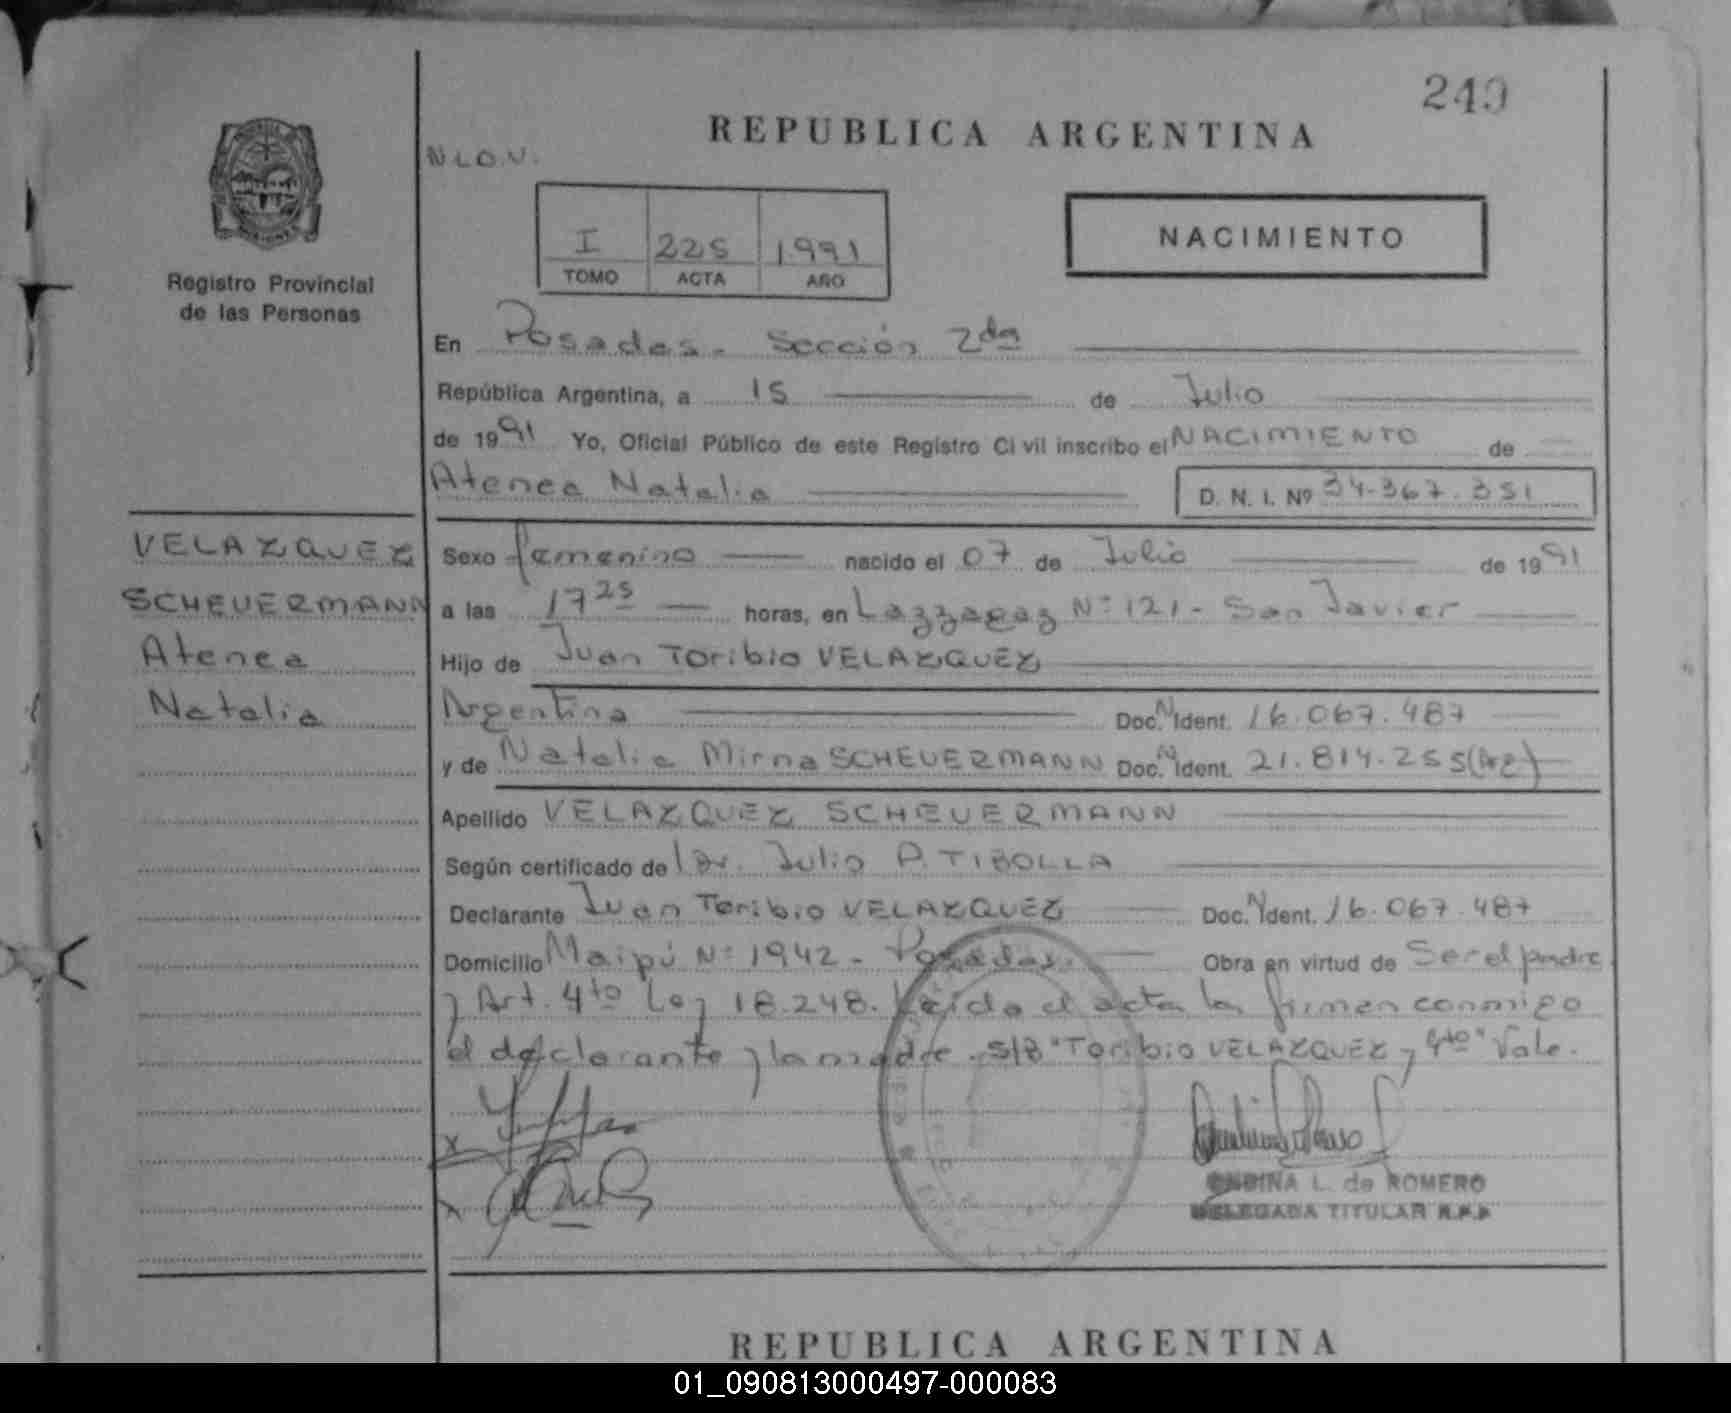 249
REPUBLICA ARGENTINA
N.L.O.V.
I 225 1991
TOMO ACTA AÑO
NACIMIENTO
Registro Provincial
de las Personas
En Posadas - Sección 2da
República Argentina, a 15 de Julio
de 1991 Yo, Oficial Público de este Registro Civil inscribo el NACIMIENTO de
Atenea Natalia D. N. I. Nº 34.367.351
VELAZQUEZ
SCHEUERMANN
Atenea
Natalia
Sexo femenino nacido el 07 de Julio de 1991
a las 17 25 horas, en Nº 121 - San Javier
Hijo de Juan Toribio VELAZQUEZ
Argentina Doc. N Ident. 16.067.487
y de Natalia Mirna SCHEUERMANN Doc. N Ident. 21.814.255 (Arg)
Apellido VELAZQUEZ SCHEUERMANN
Según certificado de Dr. Julio A. TIBOLLA
Declarante Juan Toribio VELAZQUEZ Doc. N Ident. 16.067.487
Domicilio Maipú Nº 1942 - Posadas. Obra en virtud de Ser el padre
y Art. 4to Ley 18.248. Leida el acta la firman conmigo
el declarante y la madre. S/B "Toribio VELAZQUEZ y 4to" Vale.
L. de ROMERO
DELEGADA TITULAR R.P.P.
REPUBLICA ARGENTINA
01_090813000497-000083